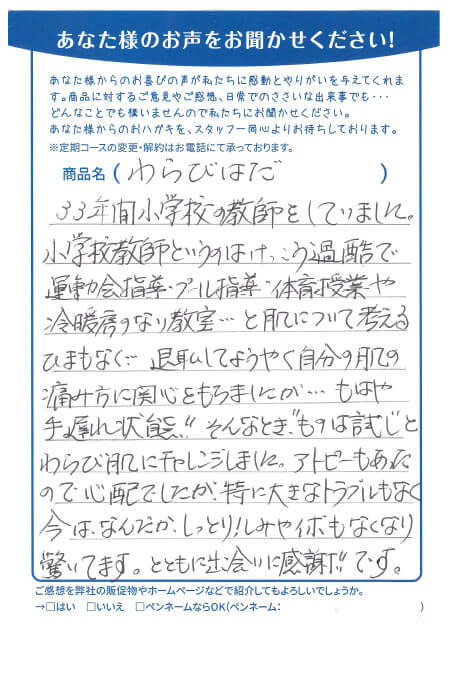 あなた様のお声をお聞かせください!
あなた様からのお喜びの声が私たちに感動とやりがいを与えてくれま
す。商品に対するご意見やご感想、日常でのささいな出来事でも・・・
どんなことでも構いませんので私たちにお聞かせください。
あなた様からのおハガキを、スタッフ一同心よりお待ちしております。
※定期コースの変更・解約はお電話にて承っております。
商品名 ( わらびはだ )
33年間小学校の教師をしていました。
小学校教師というのはけっこう過酷で
運動会指導・プール指導・体育授業や
冷暖房のない教室…と肌について考える
ひまもなく… 退職してようやく自分の肌の
痛み方に関心をもちましたが… もはや
手遅れ状態!! そんなとき、"ものは試し"と
わらび肌にチャレンジしました。アトピーもあった
ので心配でしたが、特に大きなトラブルもなく
今は、なんだか、しっとり!しみやイボもなくなり
驚いてます。 とともに出会いに感謝!!です。
ご感想を弊社の販促物やホームページなどで紹介してもよろしいでしょうか。
→□はい □いいえ □ペンネームならOK(ペンネーム: )